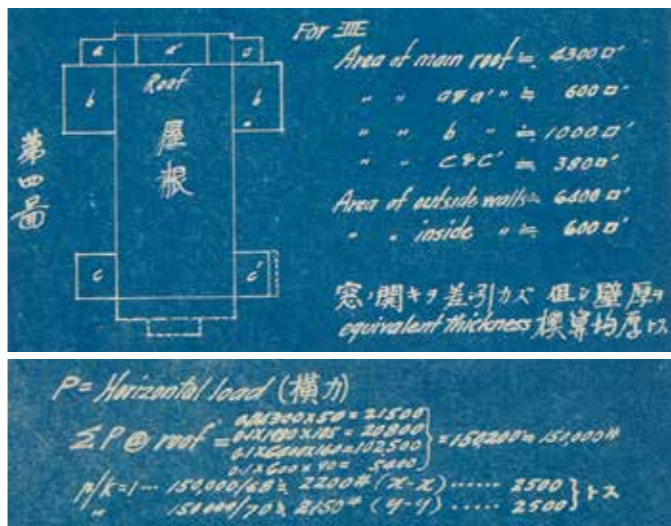 For III
Area of main roof ≒ 4300□'
" " a & a' " ≒ 600□'
" " b " ≒ 1000□'
" " c & c' ≒ 380□'
Area of outside walls ≒ 6400□'
" " inside " ≒ 600□'
a a' a
b Roof b
屋根
c c'
第四畵
窓ノ開キヲ差引カズ 但シ壁厚ヲ
equivalent thickness 標準均厚トス
P = Horizontal load (横力)
ΣP @ roof =
0.1×4300×50 = 21500
= 20800
0.1×6400×160 = 102500
0.1×600×90 = 5400
= 150,200 ≒ 150,000#
n/K=1 ··· 150,000/68 ≒ 2200# (x-x) ····· 2500
" 150000/70 ≒ 2150# (y-y) ····· 2500 } トス